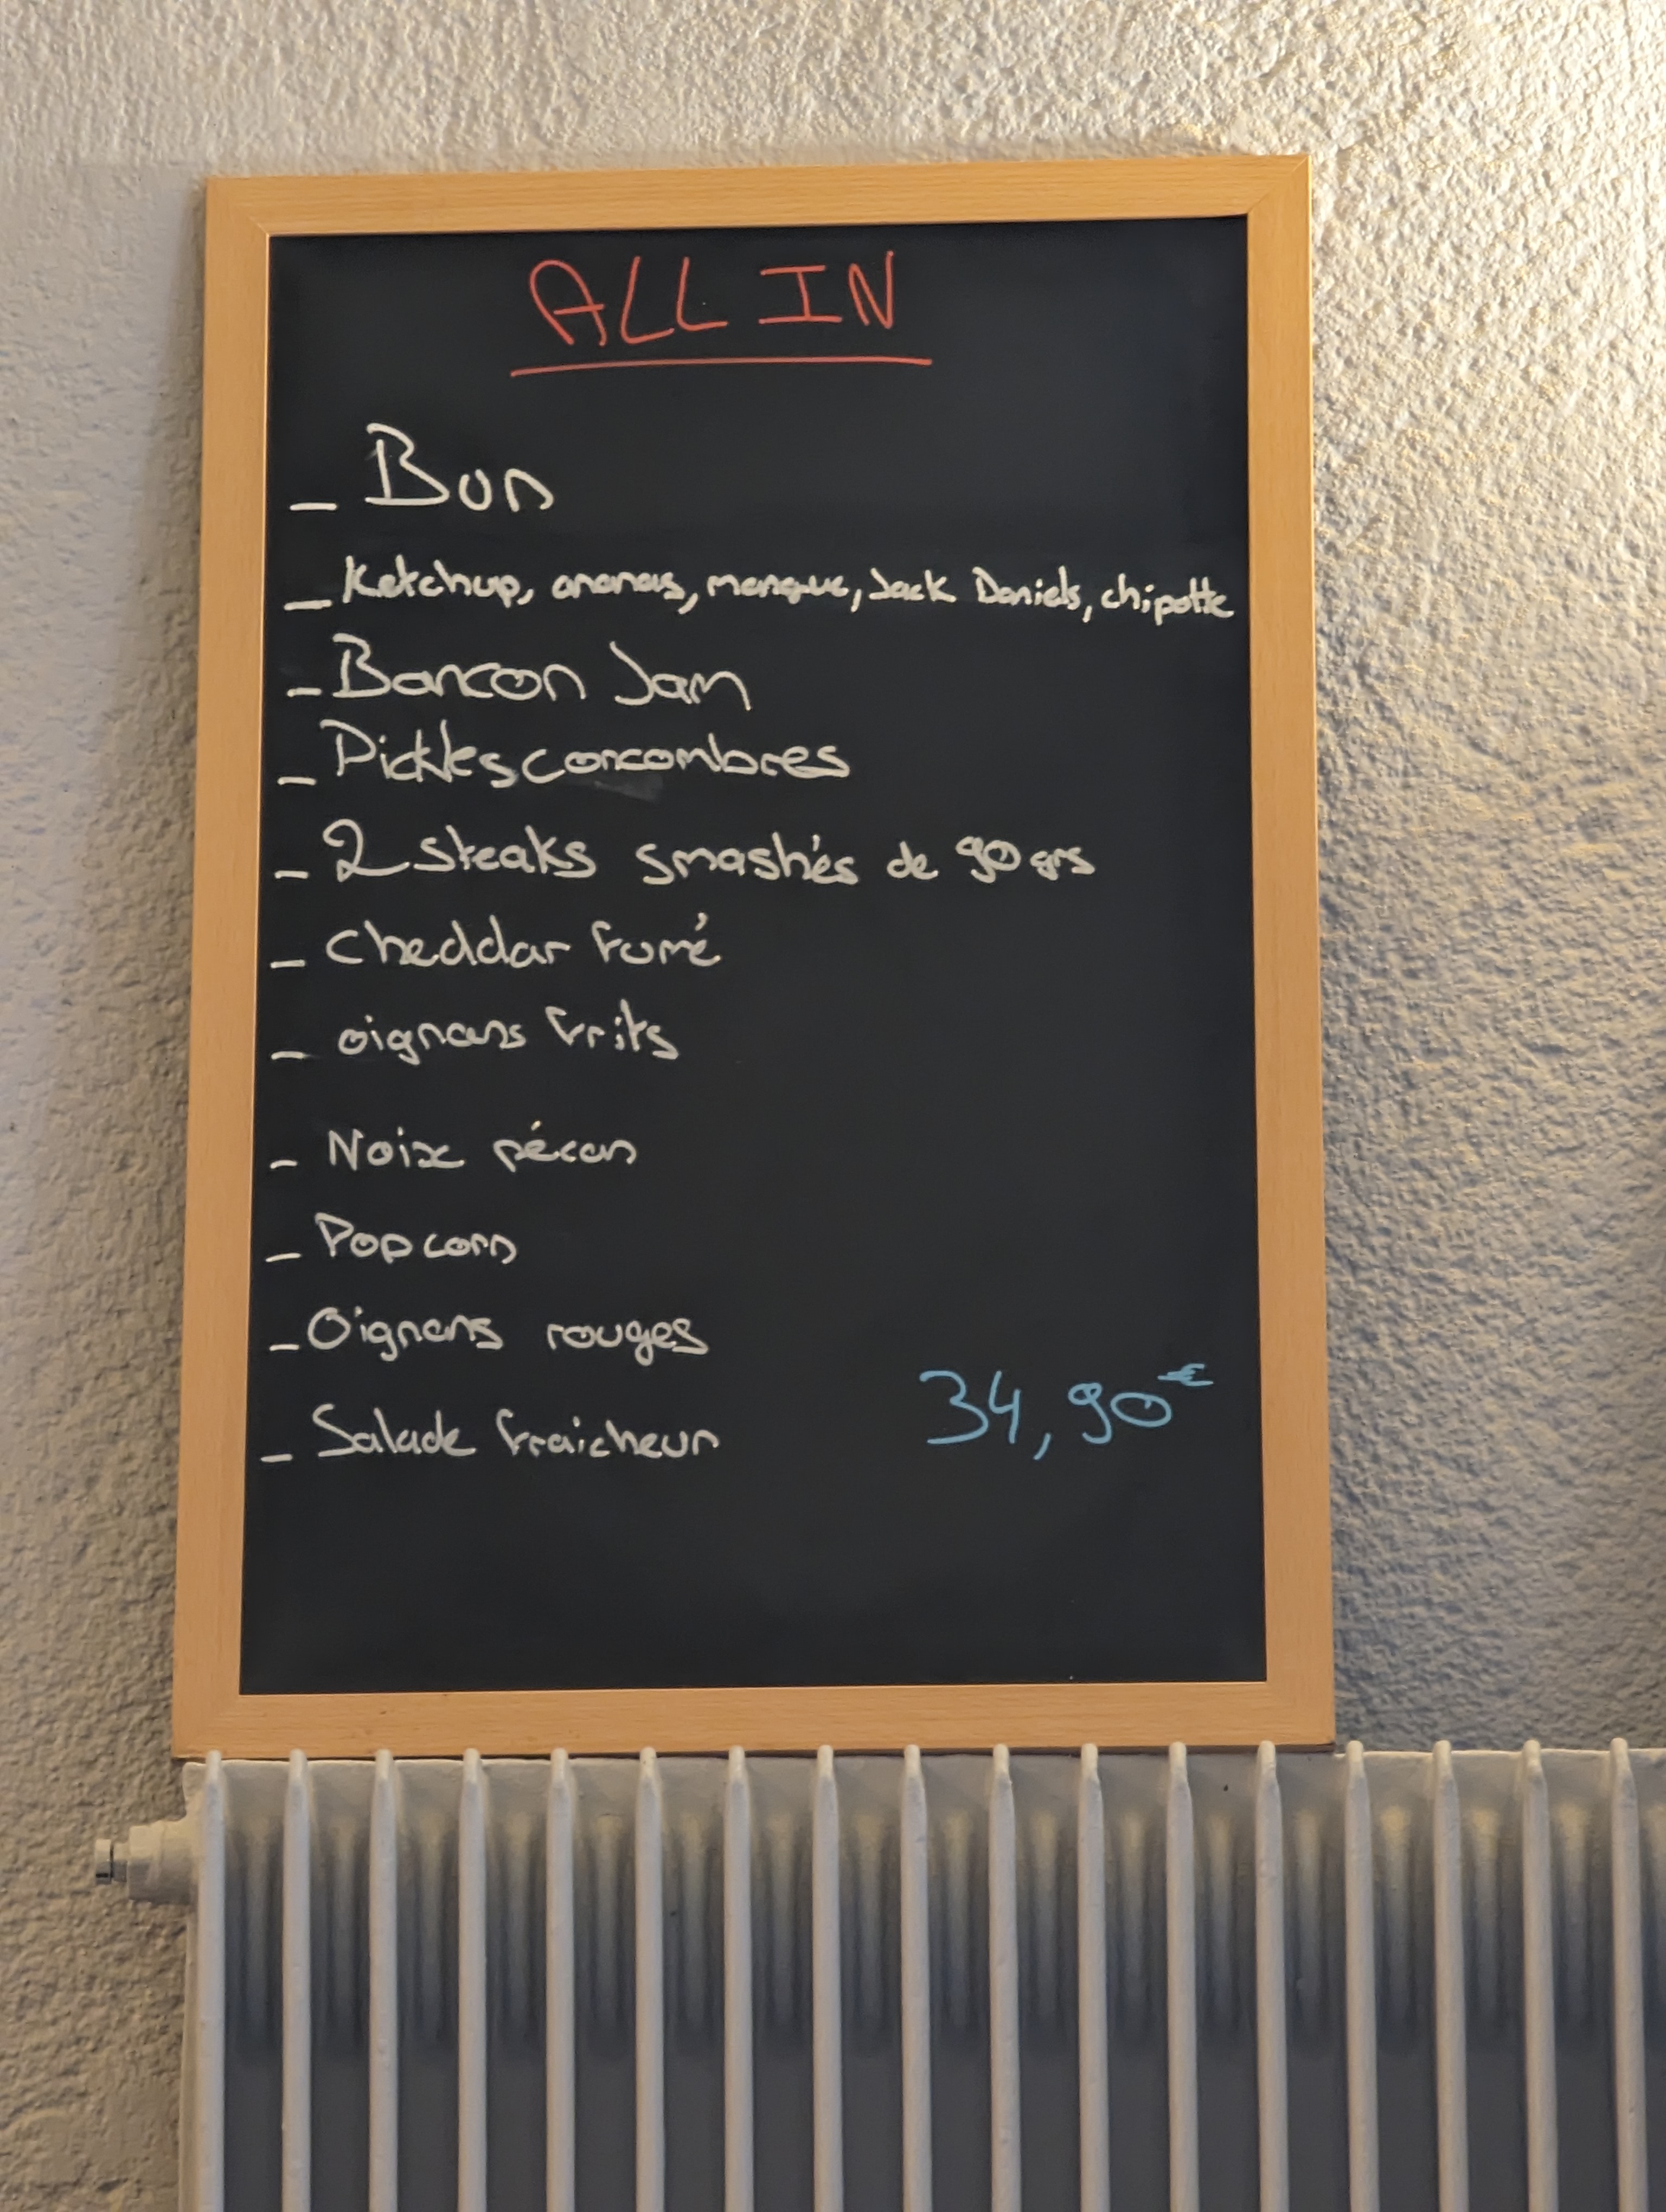 ALL IN
_ Bun
_ Ketchup, ananas, mangue, Jack Daniels, chipotle
_ Bancon Jam
_ Pickles concombres
_ 2 steaks smashés de 90 grs
_ Cheddar fumé
_ oignons frits
_ Noix pécan
_ Pop corn
_ Oignons rouges
_ Salade fraicheur
34,90€